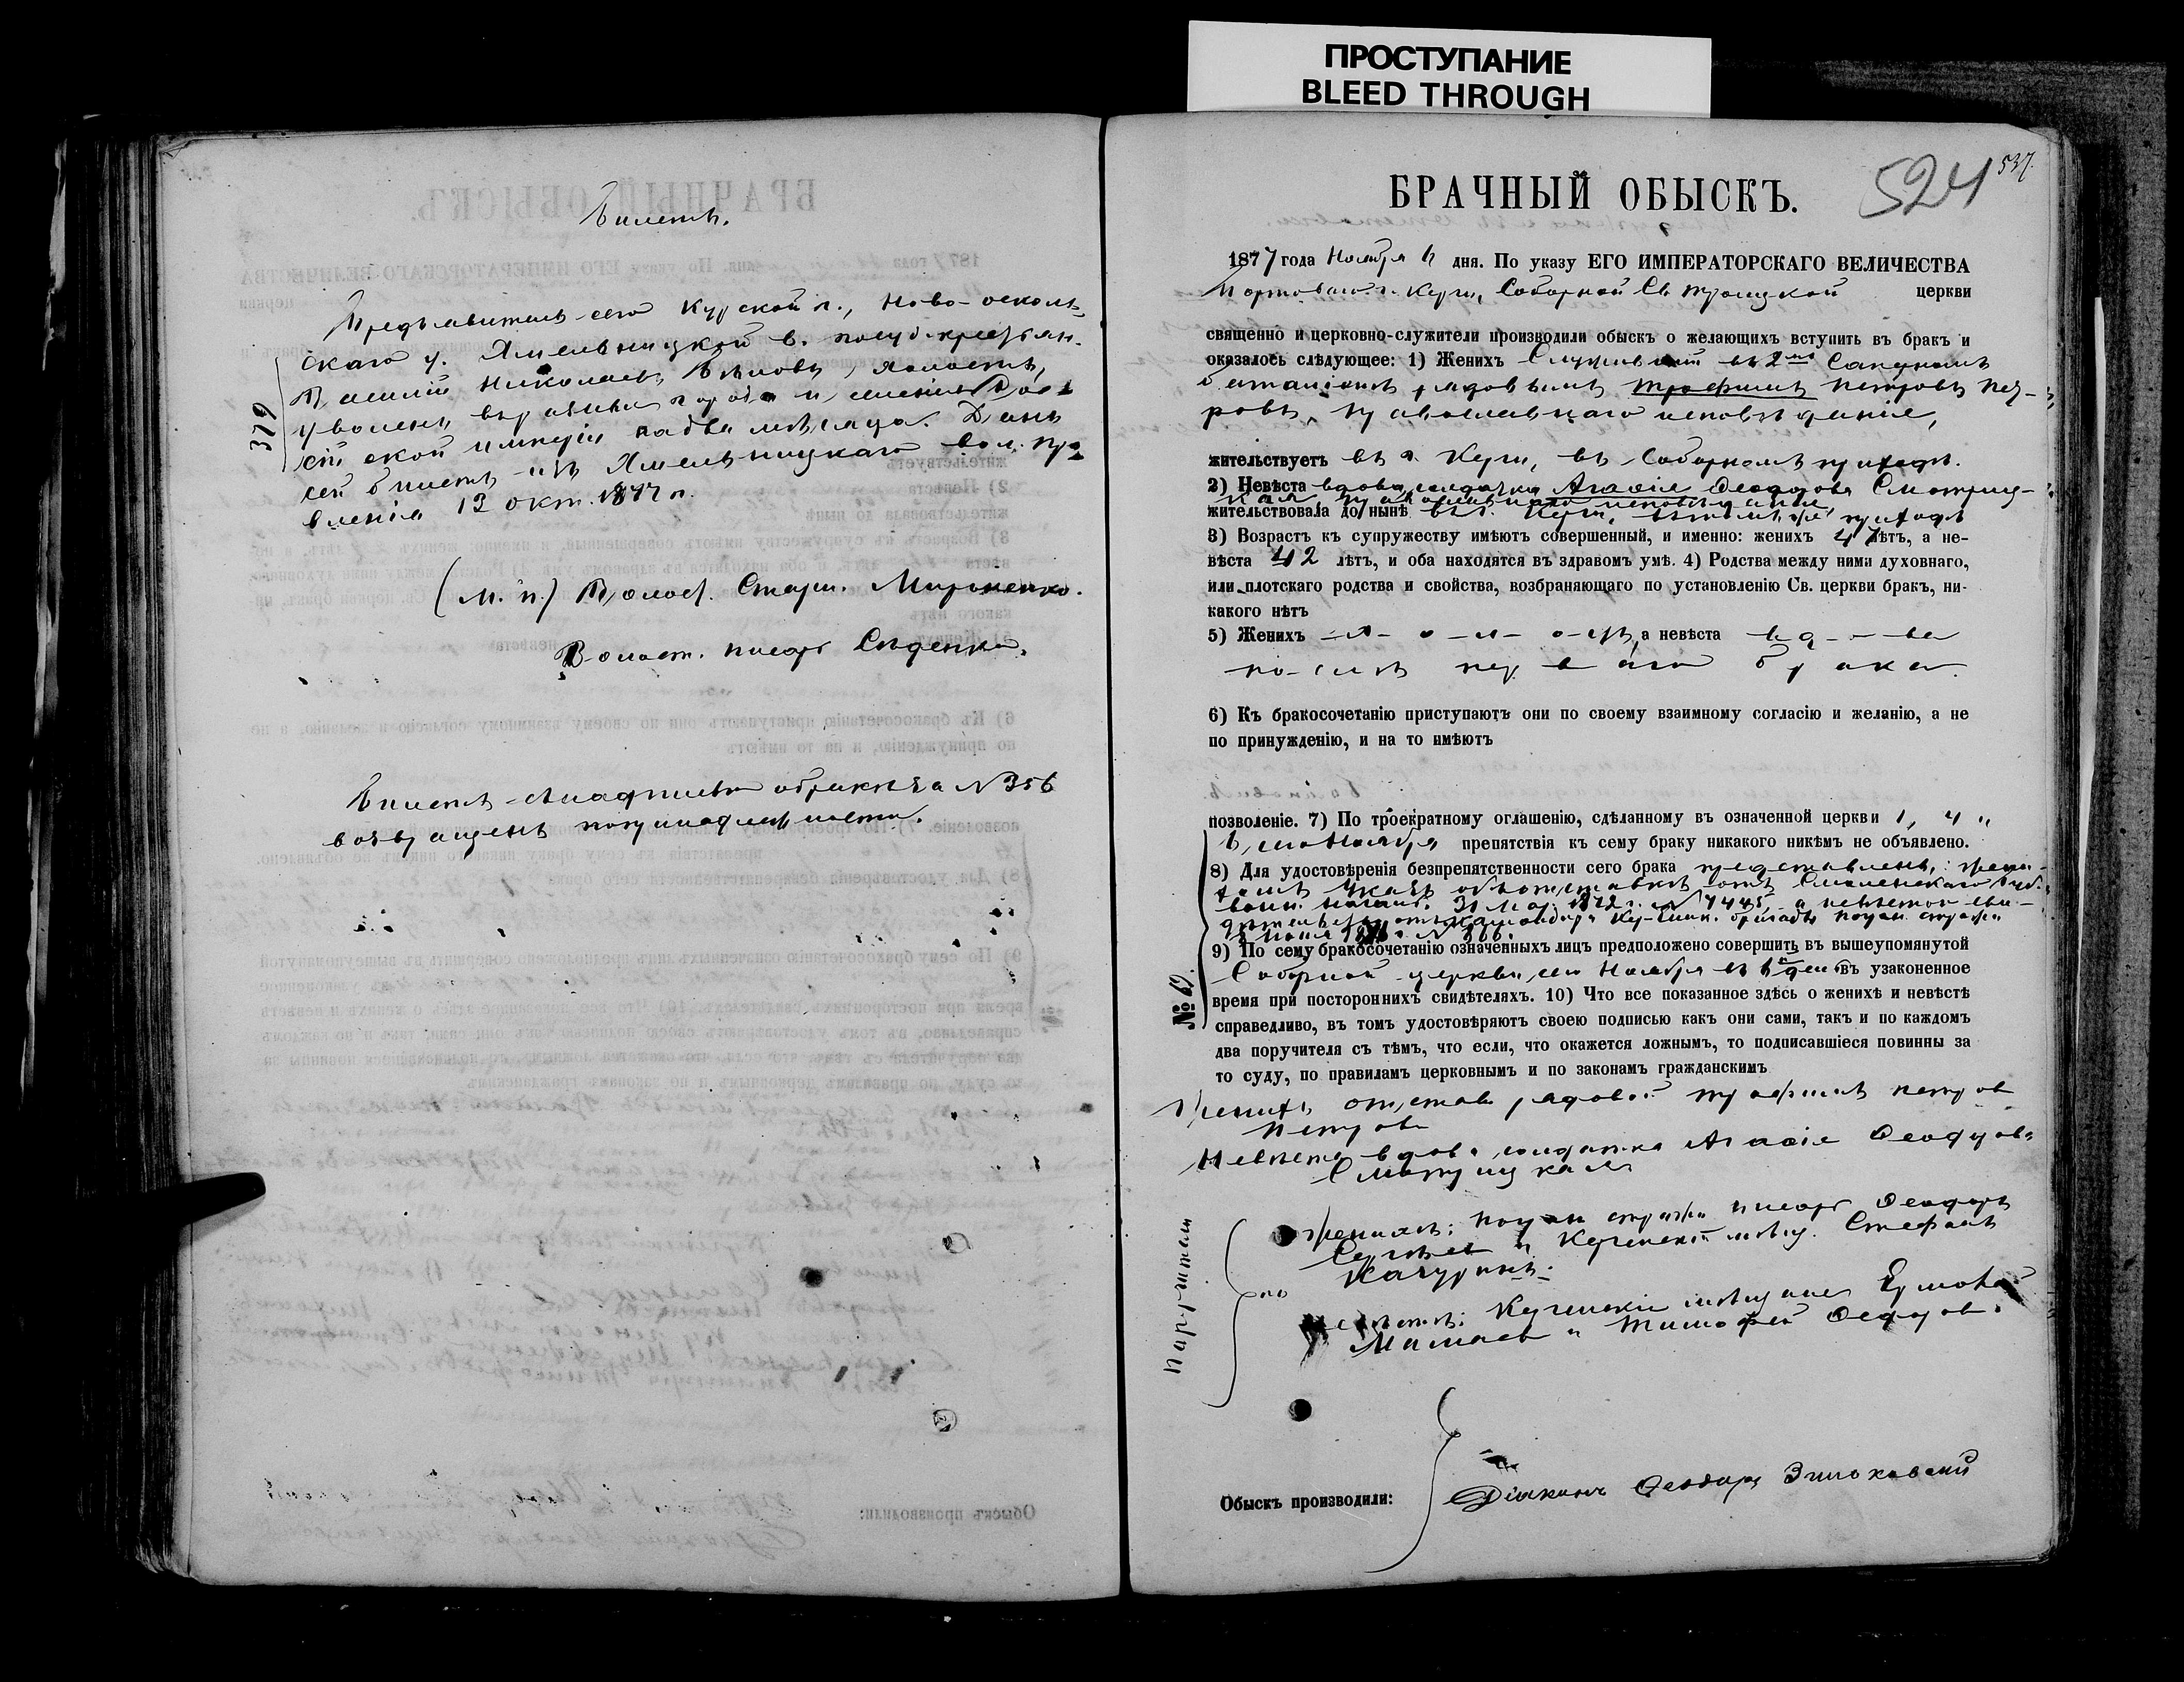 ПРОСТУПАНИЕ
BLEED THROUGH
Билетъ.
Предъявитель сего Курской г., Ново-осколь-
скаго у. Хмельницкой в. крестьян.
Василій Николаевъ Бѣловъ, холостъ,
уволенъ въ разные города и селенія Рос-
сійской имперіи на два мѣсяца. Данъ
сей билетъ изъ Хмельницкаго вол. пра-
вленія 13 окт. 1877 г.
379
(М. п.) Волост. Старш. Мироненко.
Волост. писарь
Билетъ съ надписью о бракѣ за № 356
возвращенъ по принадлежности.
524
537.
БРАЧНЫЙ ОБЫСКЪ.
1877 года Ноября 6 дня. По указу ЕГО ИМПЕРАТОРСКАГО ВЕЛИЧЕСТВА
Портоваго г. Керчи, Соборной Св. Троицкой церкви
священно и церковно-служители производили обыскъ о желающихъ вступить въ бракъ и
оказалось слѣдующее: 1) Женихъ въ 2мъ
рядовымъ Трофимъ Петровъ Пет-
ровъ, православнаго исповѣданія,
жительствуетъ въ г. Керчи, въ Соборномъ приходѣ.
2) Невѣста вдова солдатка Агаѳія Ѳеодорова Смотриц-
кая, православнаго исповѣданія,
жительствовала до нынѣ въ г. Керчи, въ томъ же приходѣ
3) Возрастъ къ супружеству имѣютъ совершенный, и именно: женихъ 47 лѣтъ, а не-
вѣста 42 лѣтъ, и оба находятся въ здравомъ умѣ. 4) Родства между ними духовнаго,
или плотскаго родства и свойства, возбраняющаго по установленію Св. церкви бракъ, ни-
какого нѣтъ
5) Женихъ холостъ, а невѣста вдова
послѣ перваго брака.
6) Къ бракосочетанію приступаютъ они по своему взаимному согласію и желанію, а не
по принужденію, и на то имѣютъ
позволеніе. 7) По троекратному оглашенію, сдѣланному въ означенной церкви 1, 4 и
6, сего Ноября препятствія къ сему браку никакого никѣмъ не объявлено.
8) Для удостовѣренія безпрепятственности сего брака представлены: жени-
хомъ Указъ объ отставкѣ отъ Смоленскаго Губ.
воин. начал. 31 Мар. 1872 г. № 7445, а невѣстою сви-
дѣтельство отъ Командира бригады погран. стражи
№ 366.
9) По сему бракосочетанію означенныхъ лицъ предположено совершить въ вышеупомянутой
Соборной церкви, сего Ноября въ 6 день въ узаконенное
время при постороннихъ свидѣтеляхъ. 10) Что все показанное здѣсь о женихѣ и невѣстѣ
справедливо, въ томъ удостовѣряютъ своею подписью какъ они сами, такъ и по каждомъ
два поручителя съ тѣмъ, что если, что окажется ложнымъ, то подписавшіеся повинны за
то суду, по правиламъ церковнымъ и по законамъ гражданскимъ
№ 69.
Женихъ отстав. рядовой Трофимъ Петров
Петровъ
Невѣста вдова солдатка Агаѳія Ѳеодорова
Смотрицкая
Поручители
по
женихѣ: погран. стражи писарь Ѳеодоръ
Сергѣев и Керченскій мѣщ. Стефанъ
Качуринъ.
невѣстѣ: Керченскіе мѣщане Ермолай
Мамаев и Тимофей Ѳедоров.
Обыскъ производили:
Діаконъ Ѳеодоръ Зиньковскій